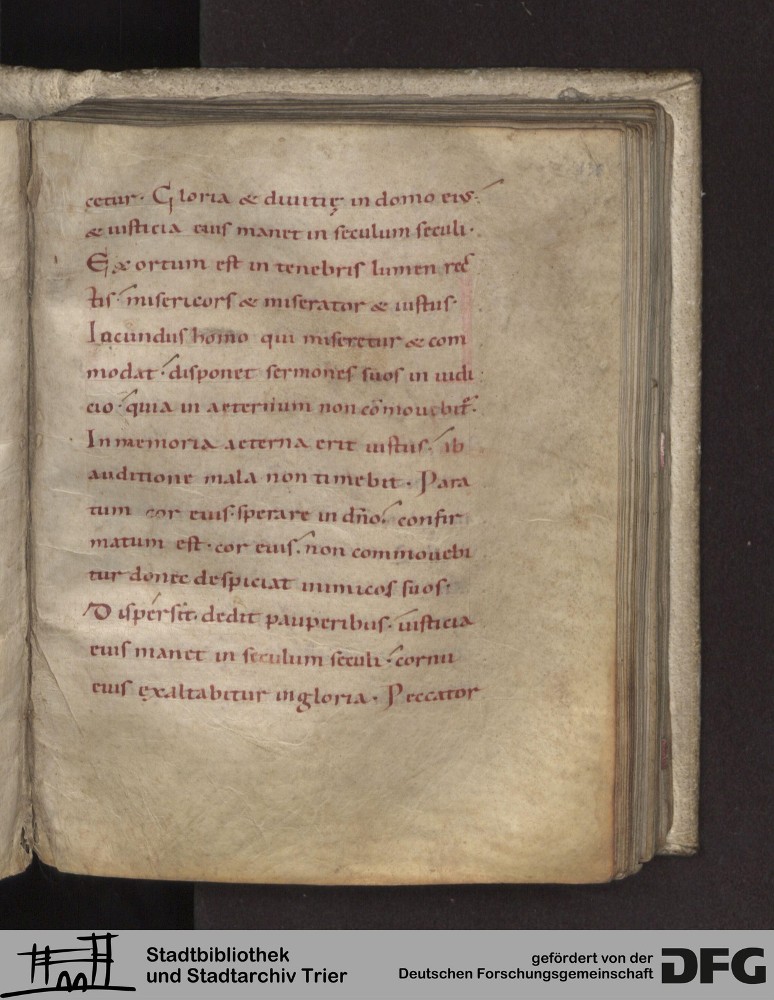 cetur· Gloria & diuitię in domo eius:
& iusticia eius manet in seculum seculi·
Exortum est in tenebris lumen rec
tis· misericors & miserator & iustus·
Iocundus homo qui miseretur & com
modat· disponet sermones suos in iudi
cio· quia in aeternum non cōmouebit̄·
In memoria aeterna erit iustus· ab
auditione mala non timebit· Para
tum cor eius· sperare in dn̄o· confir
matum est· cor eius· non commouebi
tur donec despiciat inimicos suos·
Dispersit· dedit pauperibus· iusticia
eius manet in seculum seculi· cornu
eius exaltabitur in gloria· Peccator
Stadtbibliothek
und Stadtarchiv Trier
gefördert von der
Deutschen Forschungsgemeinschaft
DFG